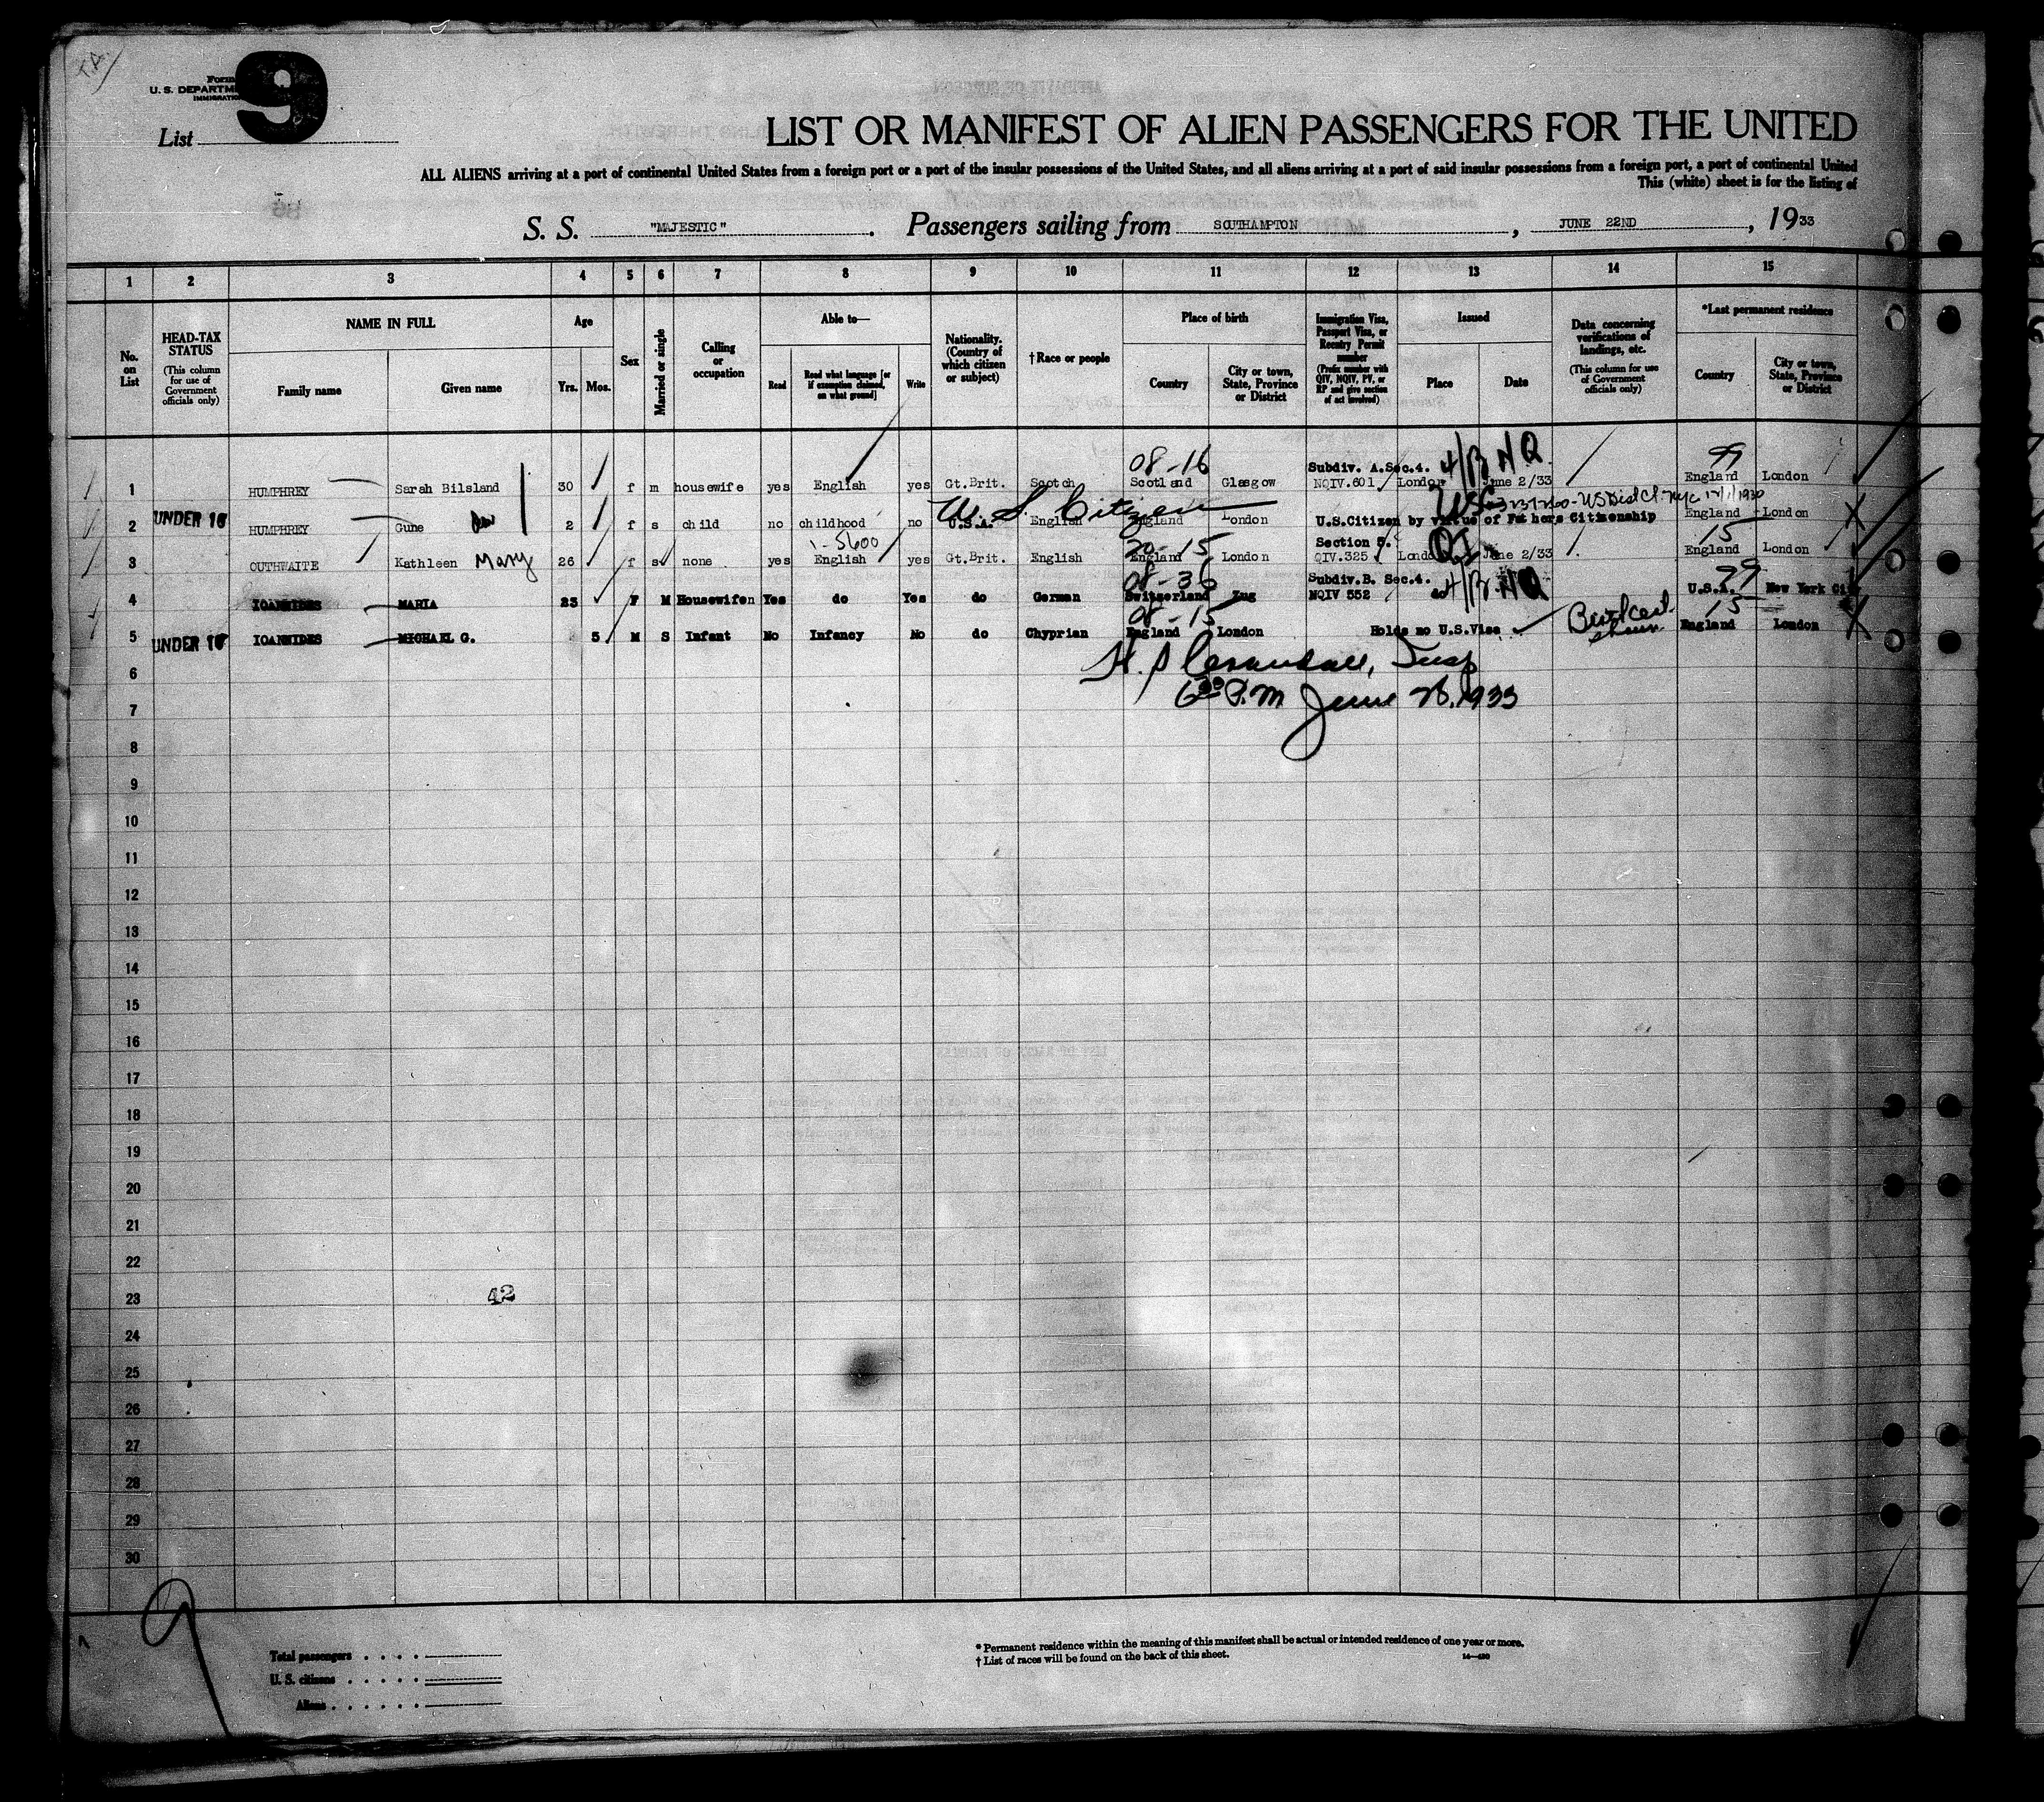 Form
U. S. DEPARTM
IMMIGRATIO
9
List
LIST OR MANIFEST OF ALIEN PASSENGERS FOR THE UNITED
ALL ALIENS arriving at a port of continental United States from a foreign port or a port of the insular possessions of the United States, and all aliens arriving at a port of said insular possessions from a foreign port, a port of continental United
This (white) sheet is for the listing of
S. S. "MAJESTIC". Passengers sailing from SOUTHAMPTON, JUNE 22ND, 1933
1 2 3 4 5 6 7 8 9 10 11 12 13 14 15
No. on List
HEAD-TAX STATUS (This column for use of Government officials only)
NAME IN FULL
Family name Given name
Age
Yrs. Mos.
Sex
Married or single
Calling or occupation
Able to—
Read Read what language [or if exemption claimed, on what ground] Write
Nationality. (Country of which citizen or subject)
† Race or people
Place of birth
Country City or town, State, Province or District
Immigration Visa, Passport Visa, or Reentry Permit number (Prefix number with QIV, NQIV, PV, or RP and give section of act involved)
Issued
Place Date
Data concerning verifications of landings, etc. (This column for use of Government officials only)
*Last permanent residence
Country City or town, State, Province or District
08-16 Subdiv. A.Sec.4. 4/B NQ 99
1 HUMPHREY Sarah Bilsland 30 f m housewife yes English yes Gt.Brit. Scotch Scotland Glasgow NQIV.601 London June 2/33 England London
U. S. Citizen USC
UNDER 16 2 HUMPHREY Gune 2 f s child no childhood no U.S.A. English England London U.S.Citizen by virtue of Fathers Citizenship England London
1-5600 20-15 Section 5. QI 15
3 OUTHWAITE Kathleen Mary 26 f s none yes English yes Gt.Brit. English England London QIV.325 London June 2/33 England London
08-36 Subdiv.B. Sec.4. 4/B NQ 99
4 IOANNIDES MARIA 23 F M Housewifen Yes do Yes do German Switzerland Zug NQIV 552 do U.S.A. New York City
08-15 15
UNDER 16 5 IOANNIDES MICHAEL G. 5 M S Infant No Infancy No do Chyprian England London Holds no U.S.Visa England London
6
7
6 P.M June 28, 1933
8
9
10
11
12
13
14
15
16
17
18
19
20
21
22
23 42
24
25
26
27
28
29
30
9
Total passengers
U. S. citizens
Aliens
* Permanent residence within the meaning of this manifest shall be actual or intended residence of one year or more.
† List of races will be found on the back of this sheet.